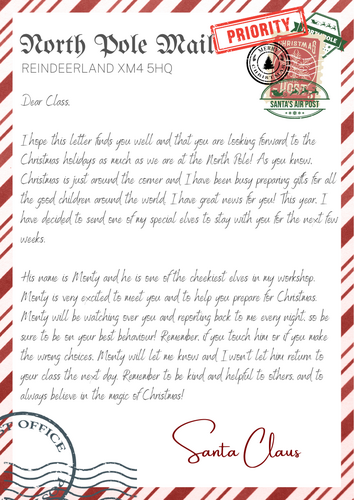 North Pole Mail
PRIORITY
REINDEERLAND XM4 5HQ
MERRY
CHRISTMAS
CHRISTMAS
POST
NORTH POLE
SANTA'S AIR POST
Dear Class,
I hope this letter finds you well and that you are looking forward to the
Christmas holidays as much as we are at the North Pole! As you know,
Christmas is just around the corner and I have been busy preparing gifts for all
the good children around the world. I have great news for you! This year, I
have decided to send one of my special elves to stay with you for the next few
weeks.
His name is Monty and he is one of the cheekiest elves in my workshop.
Monty is very excited to meet you and to help you prepare for Christmas.
Monty will be watching over you and reporting back to me every night, so be
sure to be on your best behaviour! Remember, if you touch him or if you make
the wrong choices, Monty will let me know and I won't let him return to
your class the next day. Remember to be kind and helpful to others, and to
always believe in the magic of Christmas!
Santa Claus
OFFICE